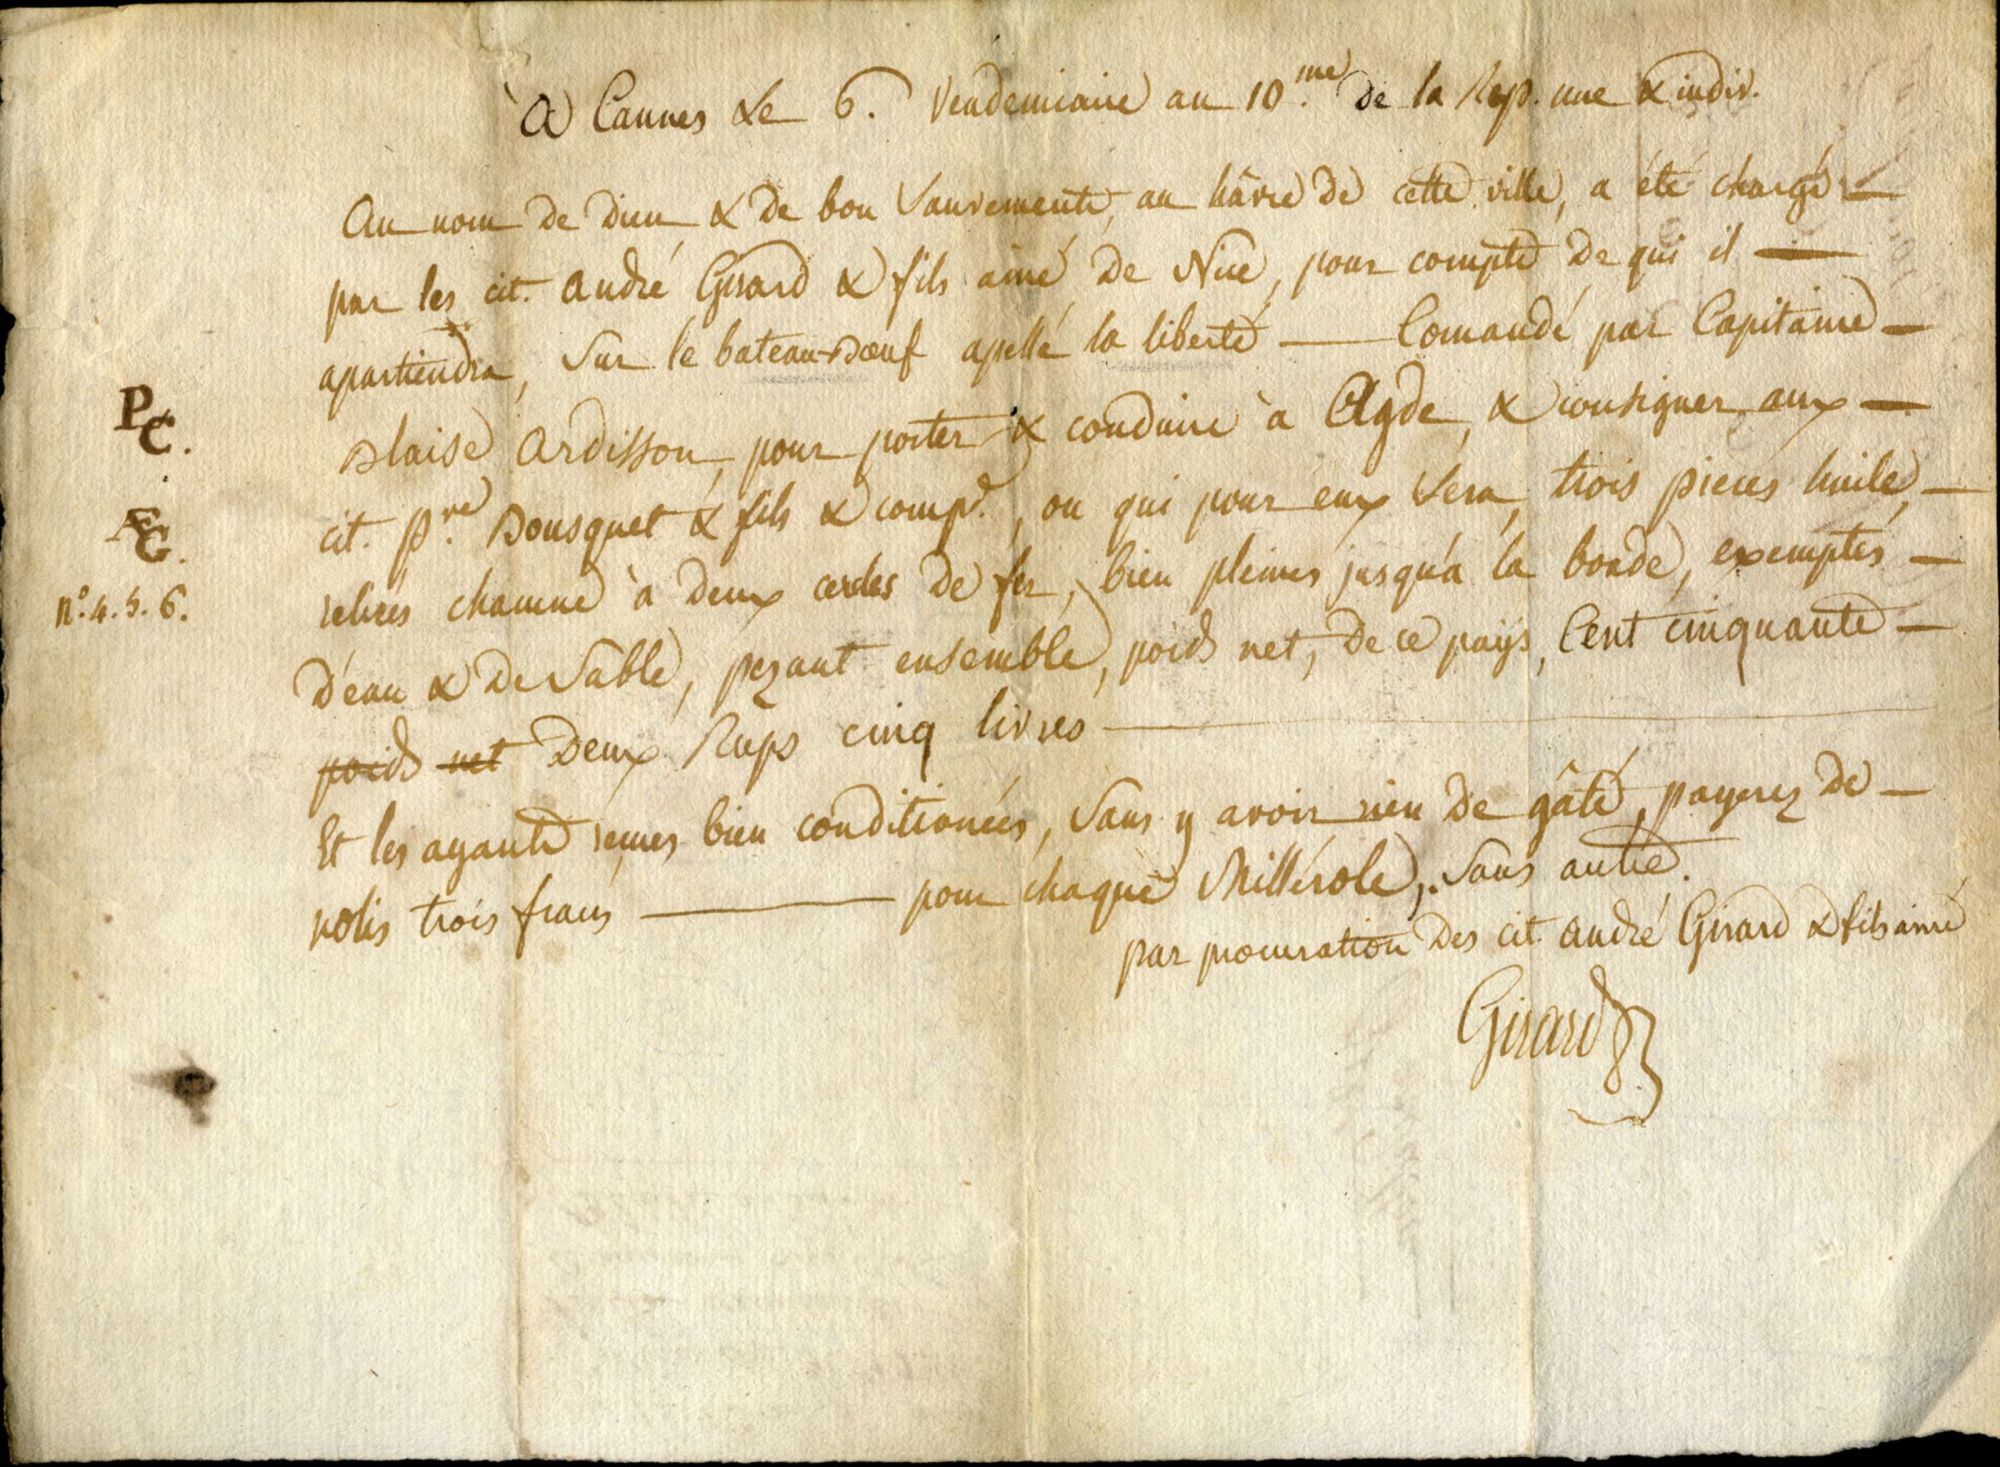 à Cannes Le 6. Vendemiaire an 10.me de la Rep. une & indiv.
Au nom de Dieu & de bon Sauvement, au hâvre de cette ville, a été chargé
par les cit. André Girard & fils ainé de Nice, pour compte de qui il
apartiendra, Sur le bateau-bœuf apellé la liberté — Comandé par Capitaine
Blaise Ardisson, pour porter & conduire à Agde, & consigner aux
P
C.
cit. P.re Bousquet & fils & comp.e, ou qui pour eux Sera, trois pieces huile,
Æ
G.
reliées chacune à deux cercles de fer, bien pleines jusqu'à la bonde, exemptes
n.o 4. 5. 6.
d'eau & de Sable, pezant ensemble, poids net, de ce pays, Cent cinquante
poids net Deux Rups cinq livres
Et les ayant reçues bien conditionées, Sans y avoir rien de gâté, payerez de
nolis trois francs — pour chaque Millérole, Sans autre.
par procuration des cit. André Girard & fils ainé
Girard